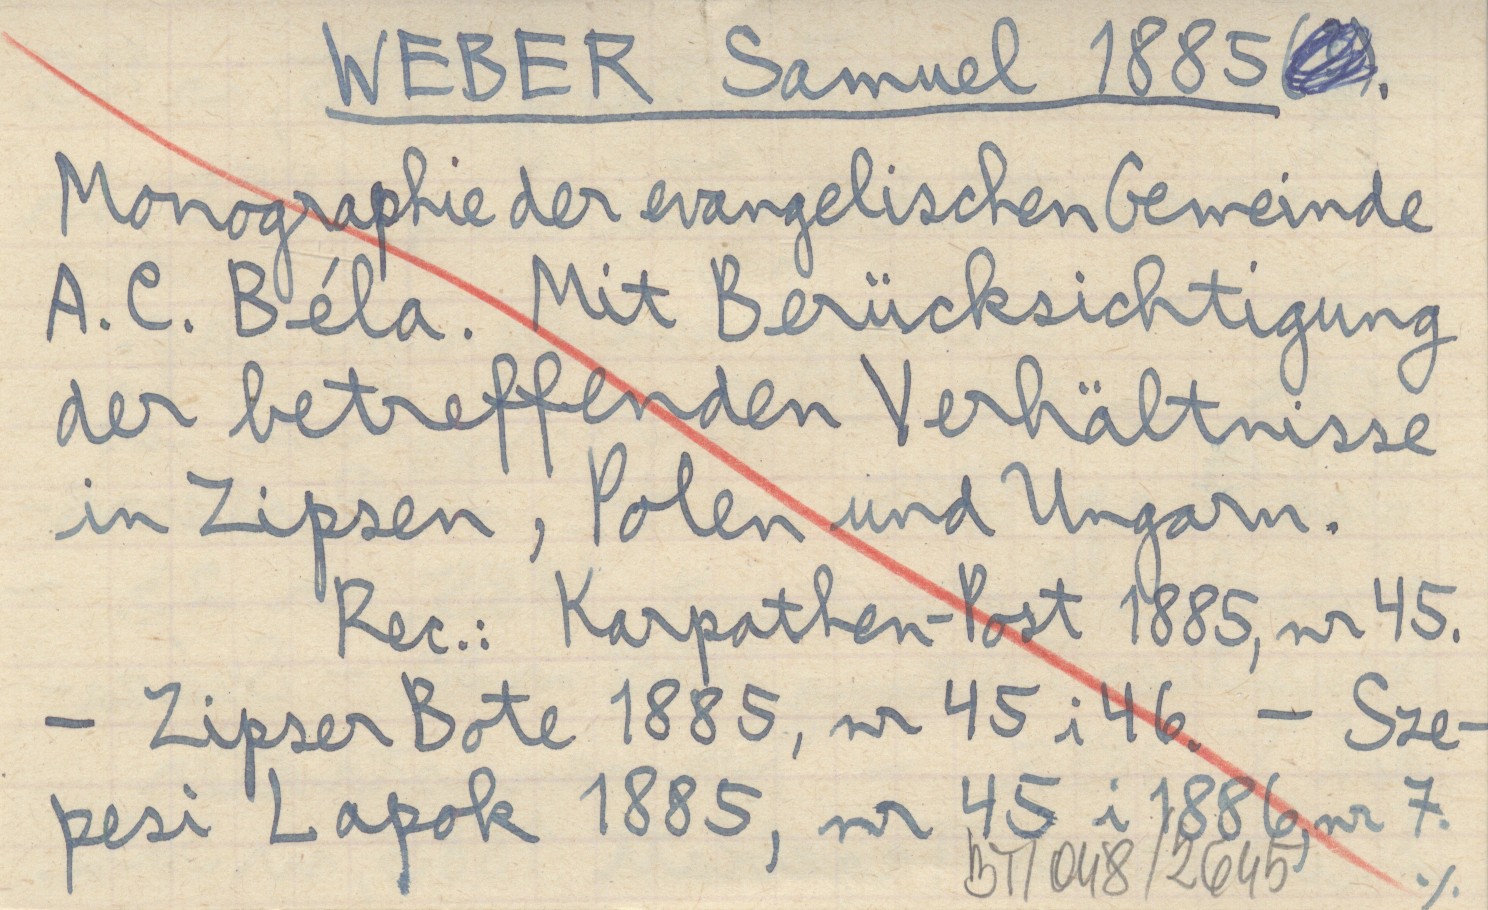 WEBER Samuel 1885.
Monographie der evangelischen Gemeinde
A.C. Béla. Mit Berücksichtigung
der betreffenden Verhältnisse
in Zipsen, Polen und Ungarn.
Rec.: Karpathen-Post 1885, nr 45.
- Zipser Bote 1885, nr 45 i 46. - Sze-
pesi Lapok 1885, nr 45 i 1886, nr 7.
BT/048/2645
./.